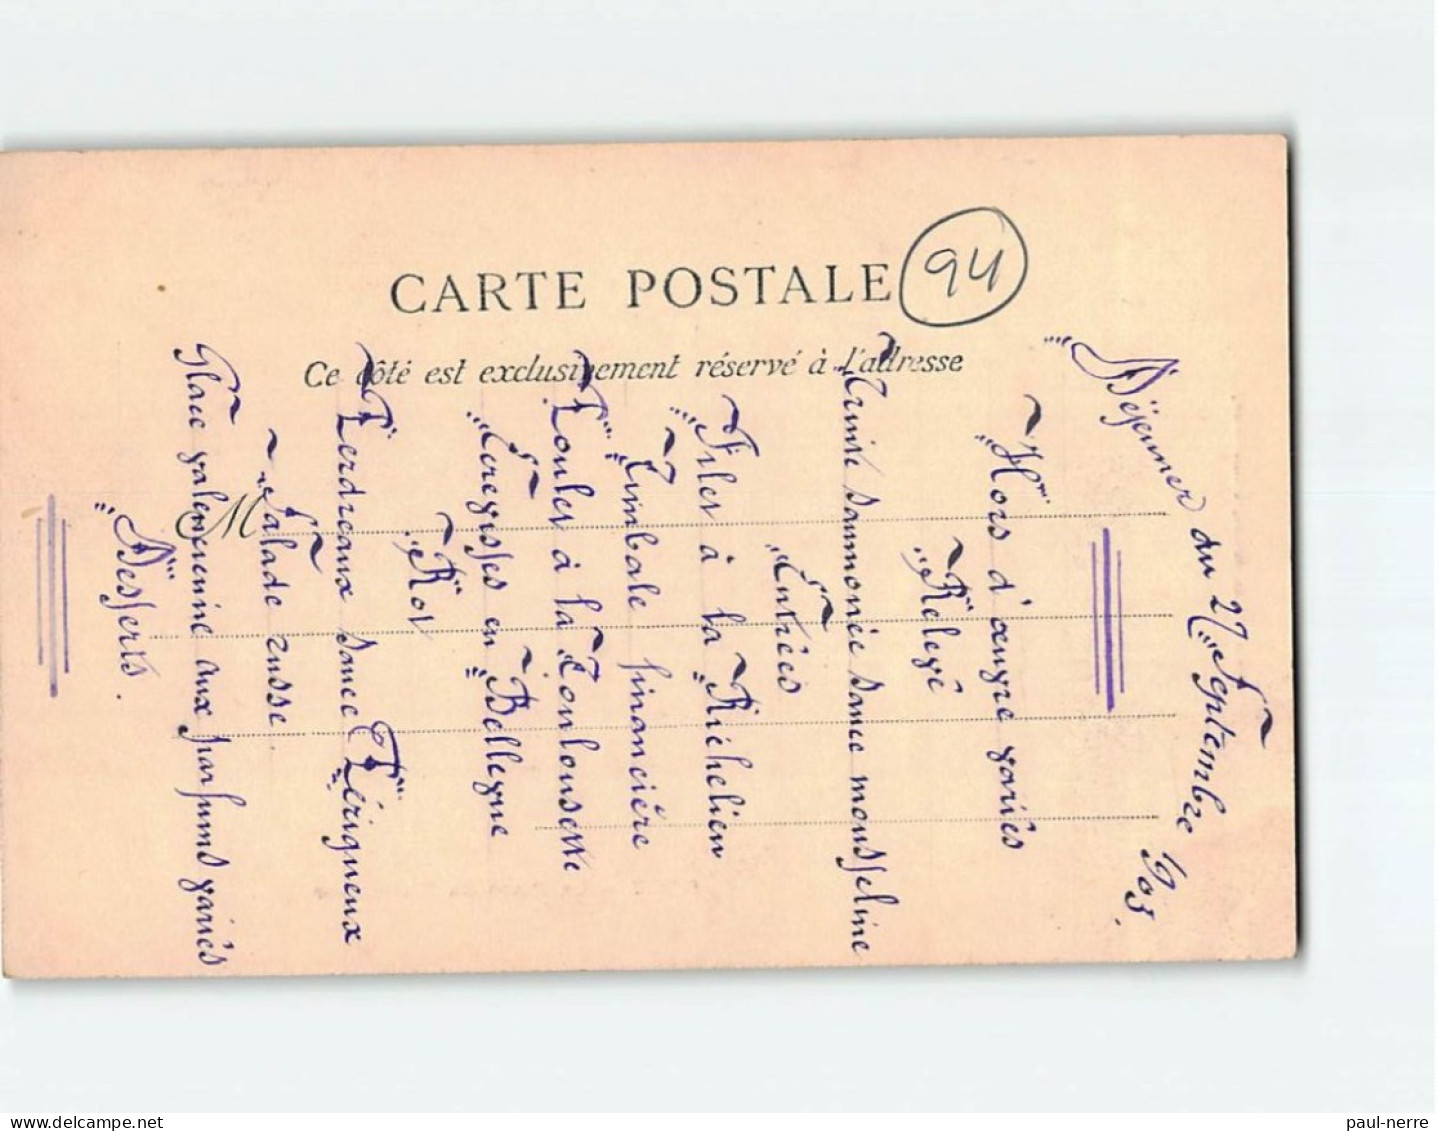 CARTE POSTALE
94
Ce côté est exclusivement réservé à l'adresse
M
Déjeuner du 27 Septembre 1903.
Hors d'œuvre variés
Relevé
Truite saumonée sauce mousseline
Entrées
Filet à la Richelieu
Timbale financière
Poulet à la Toulousette
en Bellevue
Rot
Perdreaux sauce Périgueux
Salade russe
Glace valencienne aux parfums variés
Desserts.
paul-nerre